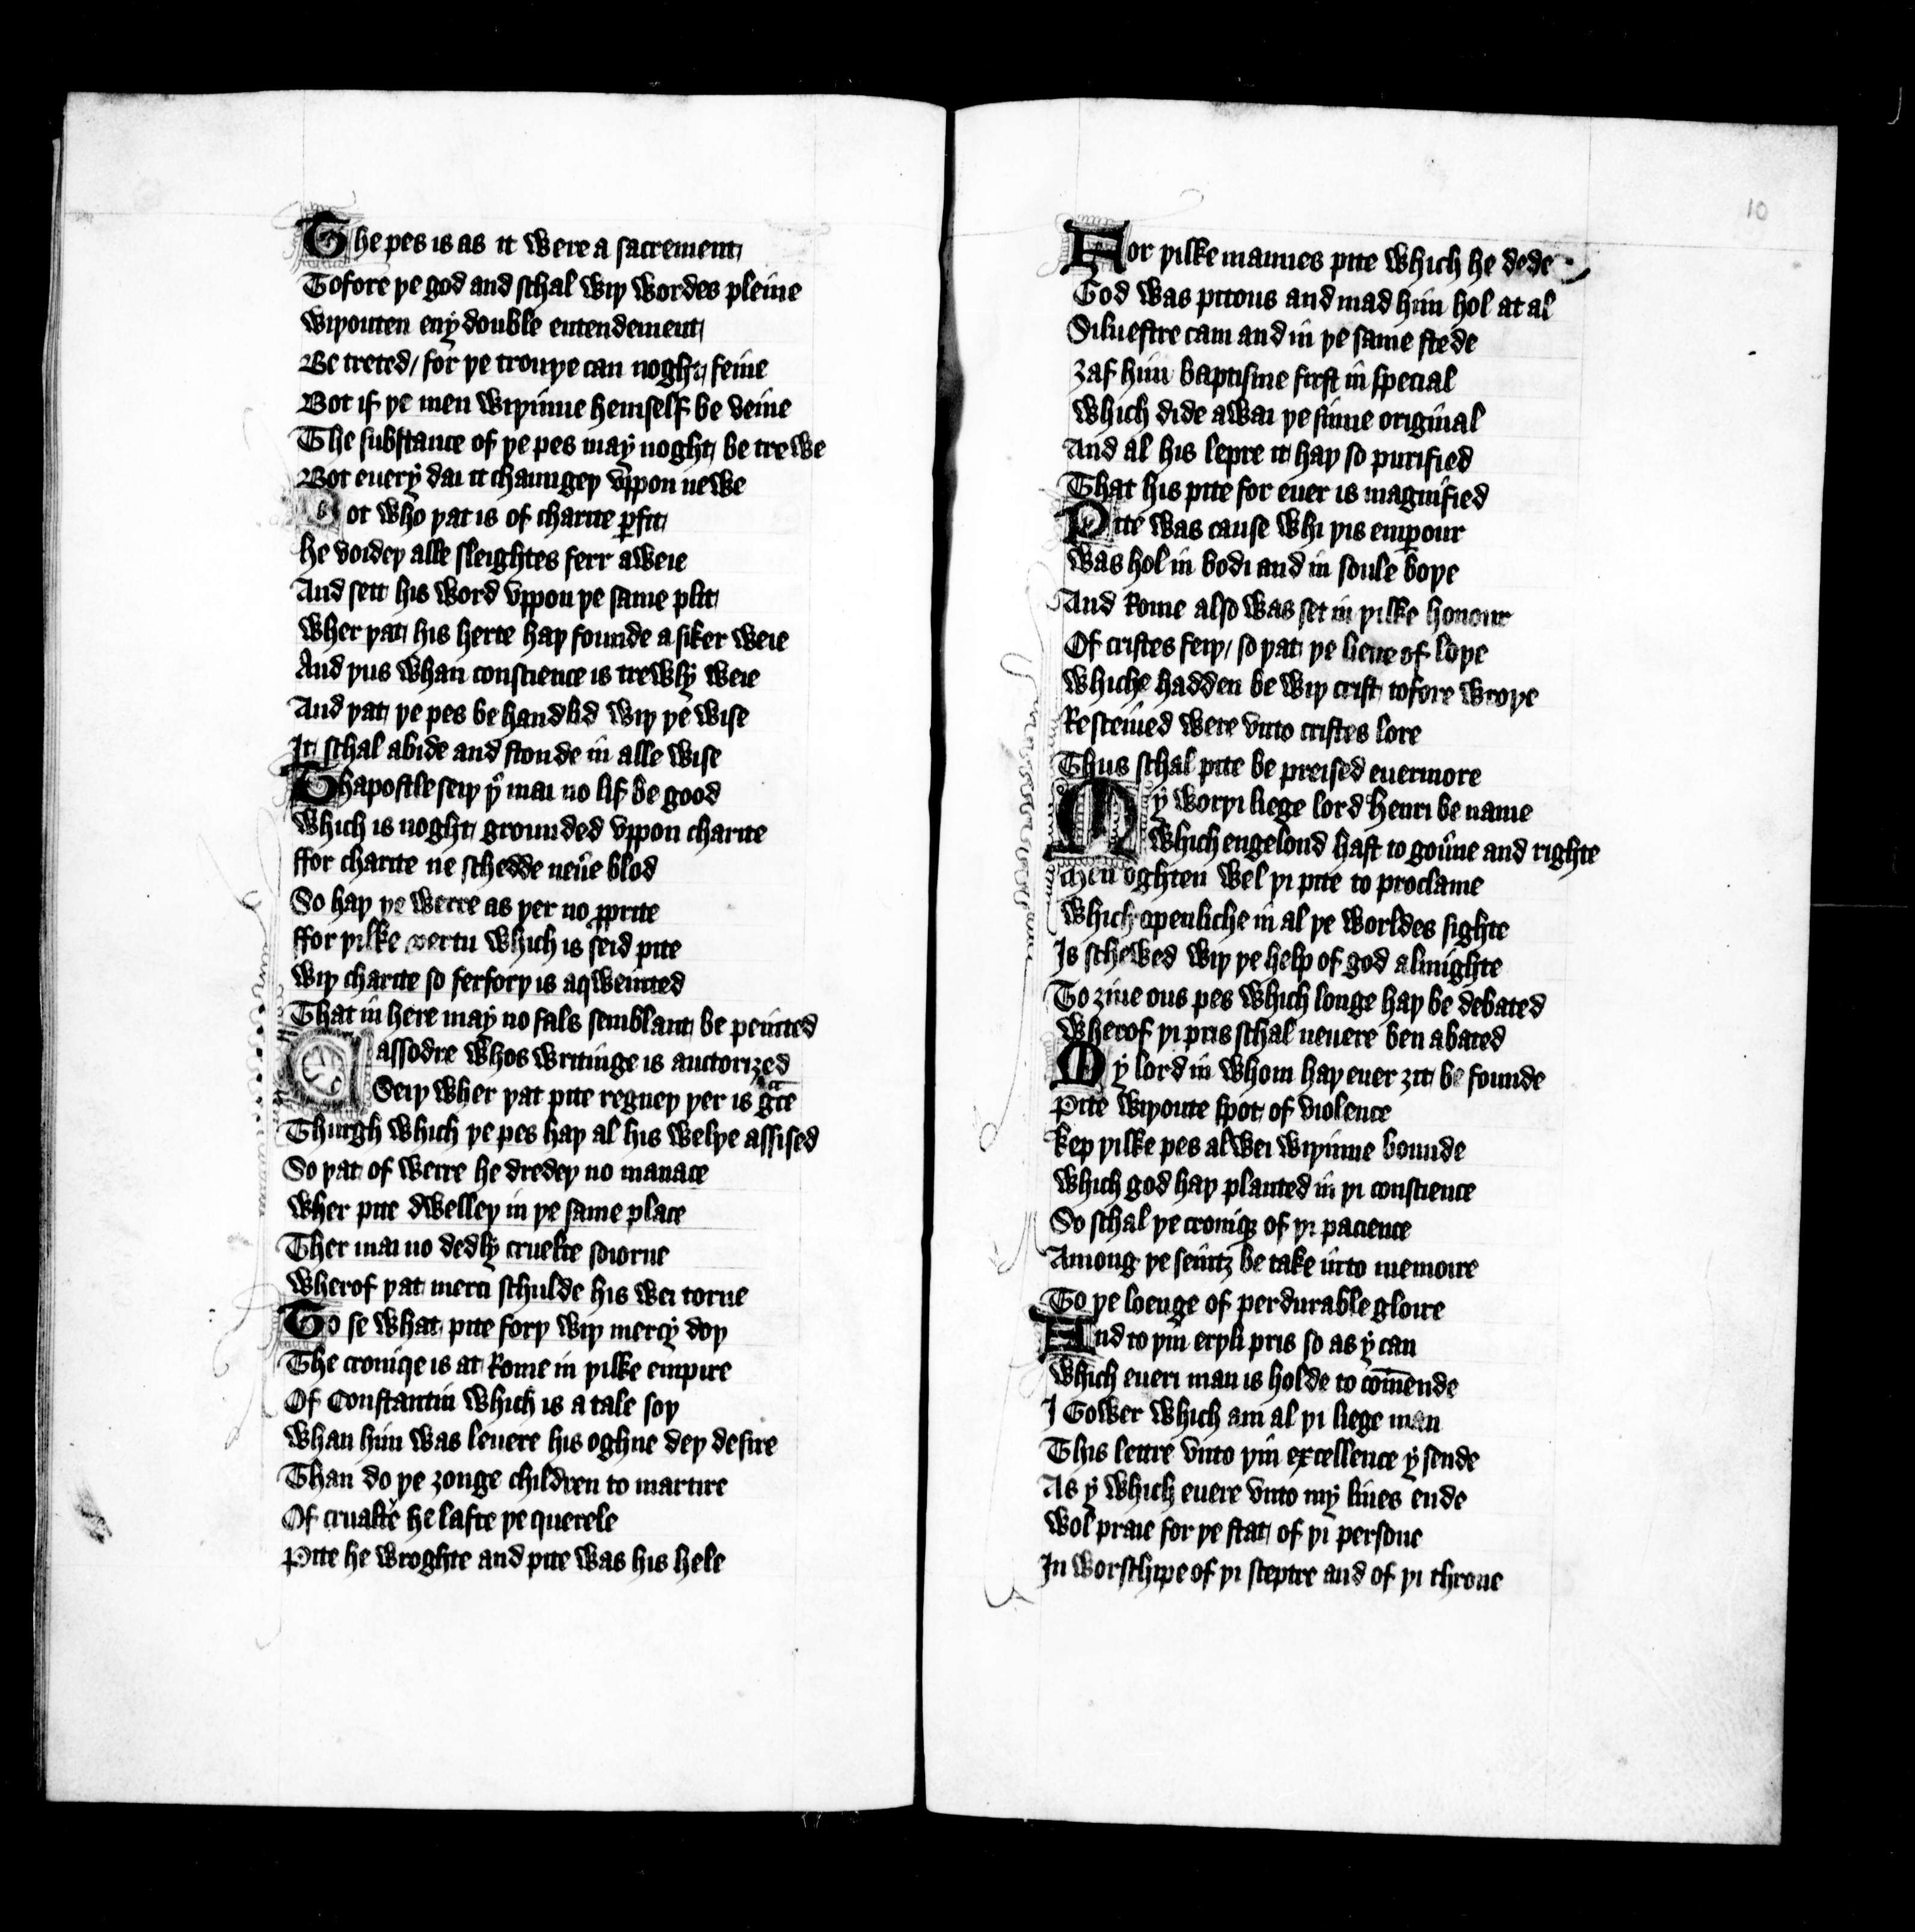 The pes is as it were a sacrement
Tofore þe god and schal wiþ wordes pleine
Wiþouten eny double entendement
Be treted / for þe trouþe can noght feine
Bot if þe men wiþinne hemself be veine
The substance of þe pes may noght be trewe
Bot euery dai it chaungeþ vppon newe
Bot who þat is of charite ꝑfit
He voideþ alle sleightes ferr aweie
And sett his word vppon þe same plit
Wher þat his herte haþ founde a siker weie
And þus whan conscience is trewly weie
And þat þe pes be handlid wiþ þe wise
It schal abide and stonde in alle wise
Thapostle seiþ þʳ mai no lif be good
Which is noght grounded vppon charite
ffor charite ne schedde neuꝰe blod
So haþ þe werre as þer no ꝓprite
ffor þilke vertu which is seid pite
Wiþ charite so ferforþ is aqweinted
That in here may no fals semblant be peinted
Cassodre whos writinge is auctorized
Seiþ wher þat pite regneþ þer is gᵃce
Thurgh which þe pes haþ al his welþe assised
So þat of werre he dredeþ no manace
Wher pite dwelleþ in þe same place
Ther mai no dedly cruelte soiorne
Wherof þat merci schulde his wei torne
To se what pite forþ wiþ mercy doþ
The croniqe is at Rome in þilke empire
Of Constantin which is a tale soþ
Whan him was leuere his oghne deþ desire
Than do þe ȝonge children to martire
Of crualte he lafte þe querele
Pite he wroghte and pite was his hele
10
For þilke mannes pite which he dede
God was pitous and mad him hol at al
Siluestre cam and in þe same stede
Ȝaf him baptisme first in special
Which dide awai þe sinne original
And al his lepre it haþ so purified
That his pite for euer is magnified
Pite was cause whi þis emꝑour
Was hol in bodi and in soule boþe
And Rome also was set in þilke honour
Of cristes feiþ / so þat þe lieue of loþe
Whiche hadden be wiþ crist tofore wroþe
Resceiued were vnto cristes lore
Thus schal pite be preised euermore
My worþi liege lord Henri be name
Which engelond hast to gouꝰne and righte
Men oghten wel þi pite to proclame
Which openliche in al þe worldes sighte
Is schewed wiþ þe help of god almighte
To ȝiue ous pes which longe haþ be debated
Wherof þi pris schal neuere ben abated
My lord in whom haþ euer ȝit be founde
Pite wiþoute spot of violence
Kep þilke pes alwei wiþinne bounde
Which god haþ planted in þi conscience
So schal þe croniqꝫ of þi pacience
Among þe seintz be take into memoire
To þe loenge of perdurable gloire
And to þin erþli pris so as y can
Which eueri man is holde to com̄ende
I Gower which am al þi liege man
This lettre vnto þin excellence y sende
As y which euere vnto my liues ende
Wol praie for þe stat of þi persone
In worschipe of þi sceptre and of þi throne